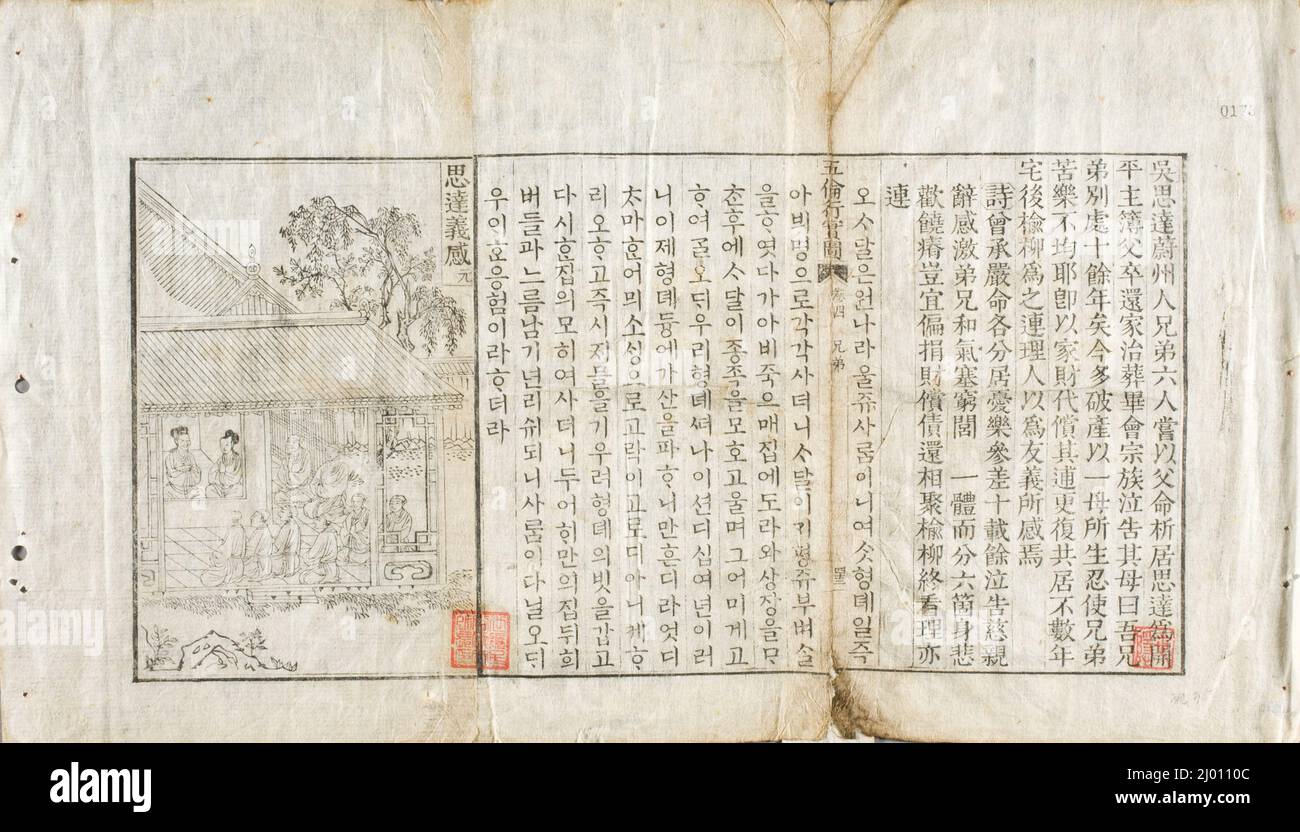 吳思達蔚州人兄弟六人嘗以父命析居思達爲開
平主簿父卒還家治葬畢會宗族泣告其母曰吾兄
弟別處十餘年矣今多破產以一母所生忍使兄弟
苦樂不均耶卽以家財代償其逋更復共居不數年
宅後楡柳爲之連理人以爲友義所感焉
詩曾承嚴命各分居憂樂參差十載餘泣告慈親
辭感激弟兄和氣塞窮閭 一體而分六箇身悲
歡饒瘠豈宜偏捐財償債還相聚楡柳終看理亦
連
오ᄉᆞ달은원나라울쥬사ᄅᆞᆷ이니여ᄉᆞᆺ형뎨일즉
五倫行實圖 卷四 兄弟
아븨명으로각각사더니ᄉᆞ달이ᄀᆡ평쥬부벼슬
을ᄒᆞ엿다가아비죽으매집에도라와상장을ᄆᆞᆺ
ᄎᆞᆫ후에ᄉᆞ달이종죡을모호고울며그어미게고
ᄒᆞ여ᄀᆞᆯ오ᄃᆡ우리형뎨ᄯᅥ나이션디십여년이러
니이제형뎨듕에가산을파ᄒᆞ니만흔디라엇디
ᄎᆞ마ᄒᆞᆫ어믜소ᄉᆡᆼ으로고락이고로디아니케ᄒᆞ
리오ᄒᆞ고즉시ᄌᆡ믈을기우려형뎨의빗을갑고
다시ᄒᆞᆫ집의모히여사더니두어ᄒᆡ만의집뒤희
버들과느릅남기년리슈되니사ᄅᆞᆷ이다닐오ᄃᆡ
우이ᄒᆞᆫ응험이라ᄒᆞ더라
思達義感 元
alamy
Image ID: 2J0110C
www.alamy.com